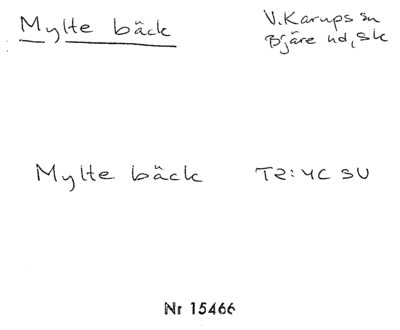 Mylte bäck V. Karups sn
Bjäre hd, Sk
Mylte bäck T2:4C SV
Nr 15466